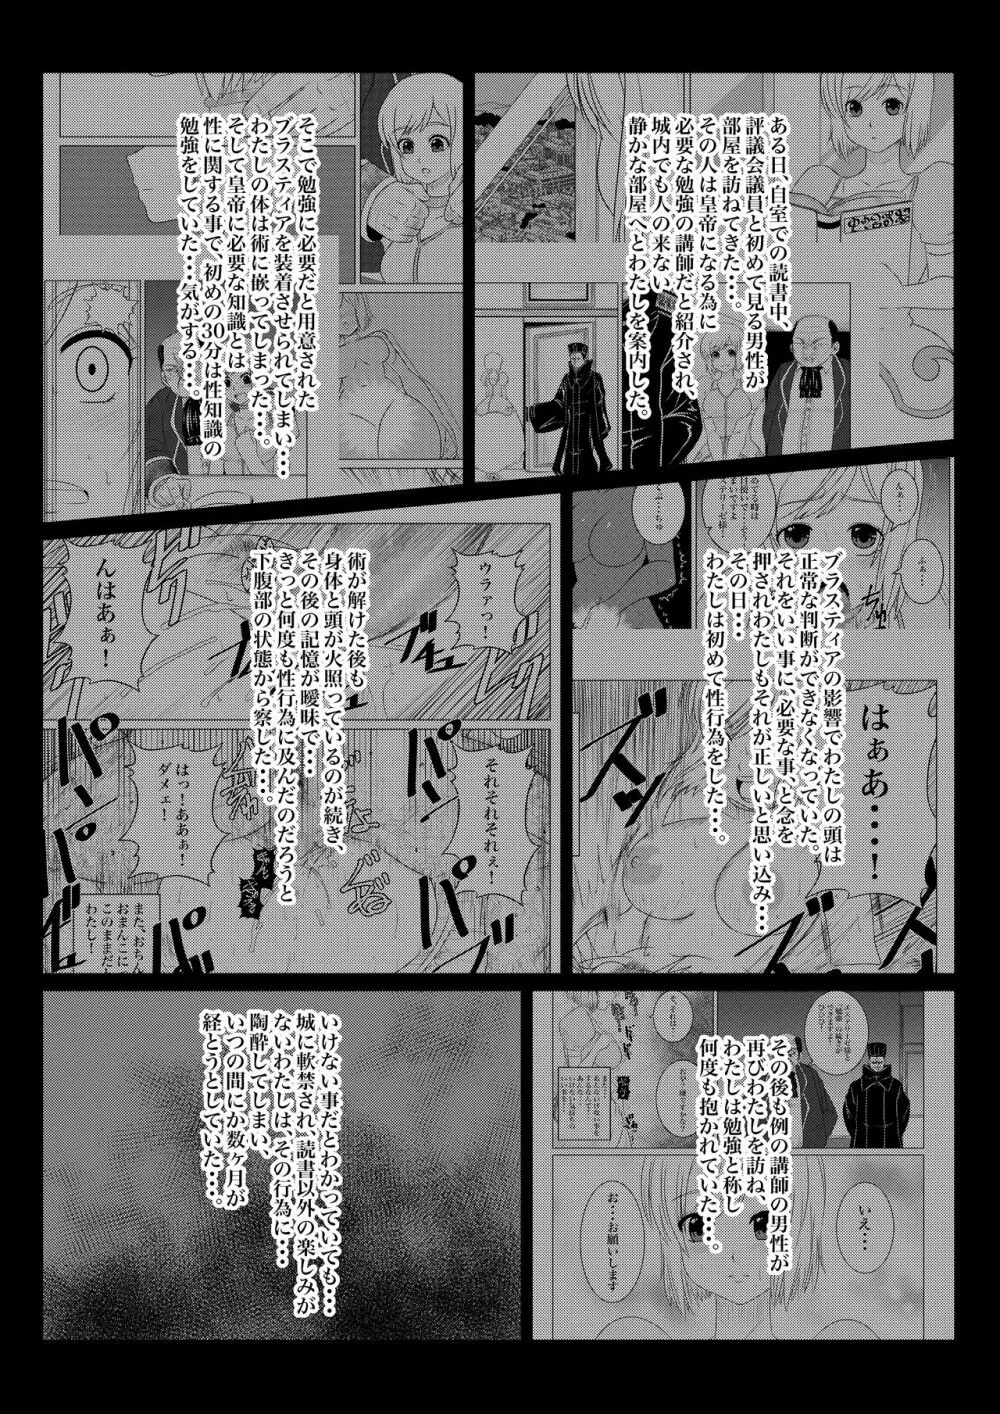 ある日、自室での読書中、
評議会議員と初めて見る男性が
部屋を訪ねてきた・・・。
その人は皇帝になる為に
必要な勉強の講師だと紹介され、
城内でも人の来ない
静かな部屋へとわたしを案内した。
そこで勉強に必要だと用意された
ブラスティアを装着させられてしまい・・・
わたしの体は術に嵌ってしまった・・・。
そして皇帝に必要な知識とは
性に関する事で、初めの30分は性知識の
勉強をしていた・・・気がする・・・。
んぁ・・・
ふぁ・・・
ブラスティアの影響でわたしの頭は
正常な判断ができなくなっていた。
それをいい事に必要な事、と念を
押されわたしもそれが正しいと思い込み・・・
その日・・・
わたしは初めて性行為をした・・・。
はぁあ・・・！
ウラァっ！
んはあぁ！
術が解けた後も
身体と頭が火照っているのが続き、
その後の記憶が曖昧で・・・
きっと何度も性行為に及んだのだろうと
下腹部の状態から察した・・・。
それそれそれぇ！
はっ！ああぁ！
ダメェ！
また、おちん
おまんこに
このままだと
わたし！
その後も例の講師の男性が
再びわたしを訪ね、
わたしは勉強と称し
何度も抱かれていた・・・。
いえ・・・
お・・・お願いします
いけない事だとわかっていても・・・
城に軟禁され、読書以外の楽しみが
ないわたしは、その行為に・・・
陶酔してしまい、
いつの間にか数ヶ月が
経とうとしていた・・・。